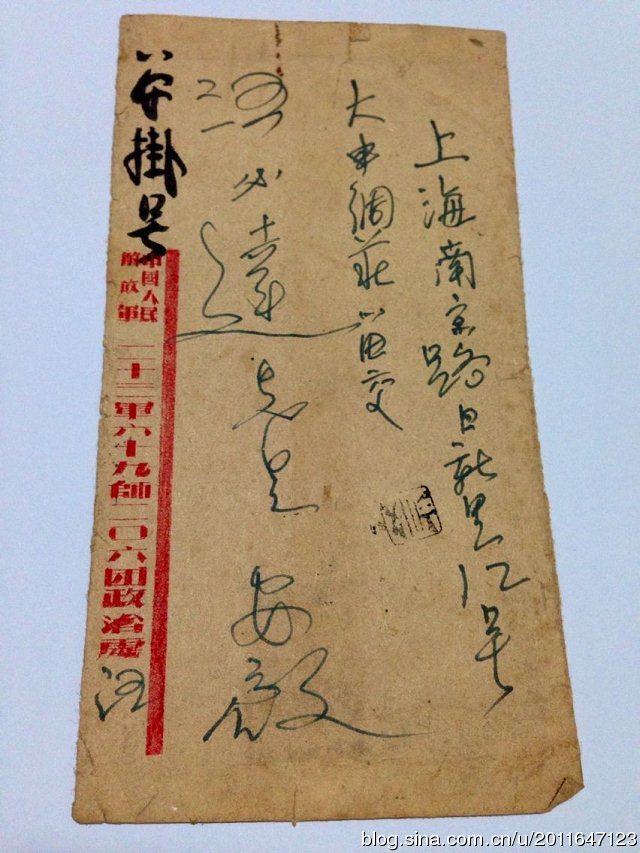 上海南京路日新里12号
大申綢莊留交
必達先生 安啟
掛号
中國人民
解放軍
二十三軍六十九師二〇六团政治處
blog.sina.com.cn/u/2011647123